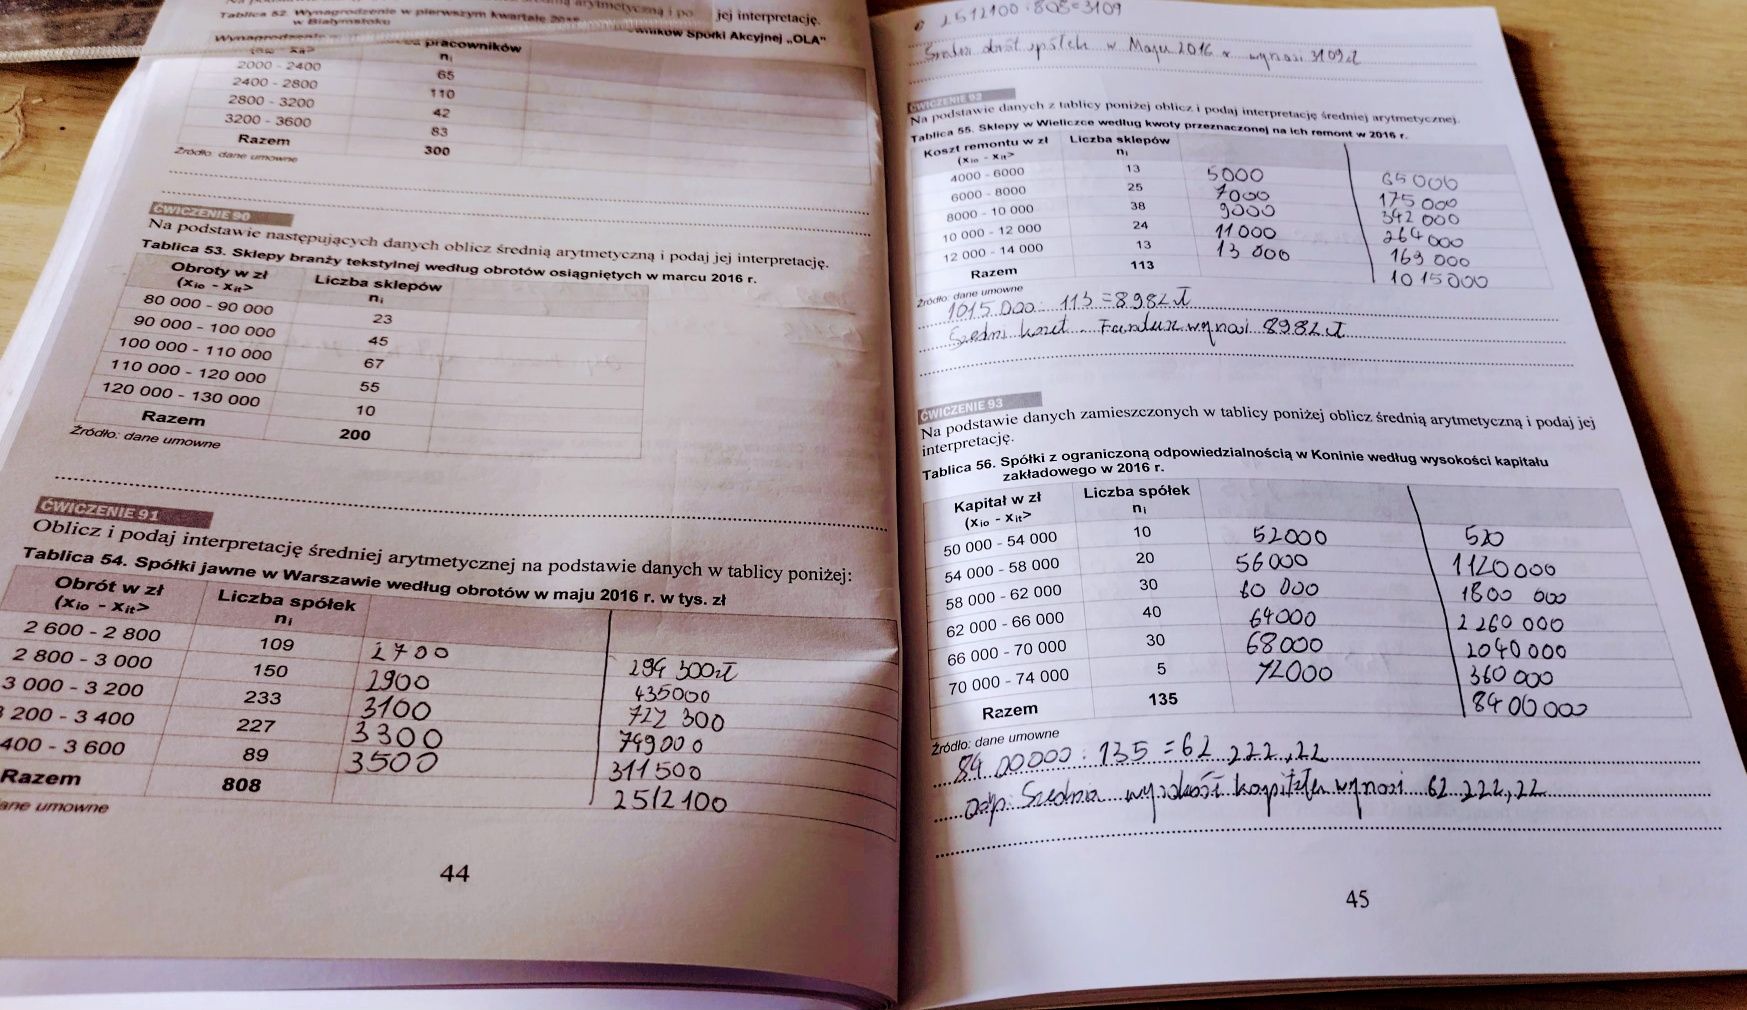 jej interpretację.
Tablica 52. Wynagrodzenie w pierwszym kwartale
w Białymstoku
Spółki Akcyjnej „OLA"
pracowników
nᵢ
2000 - 2400 65
2400 - 2800 110
2800 - 3200 42
3200 - 3600 83
Razem 300
Źródło: dane umowne
ĆWICZENIE 90
Na podstawie następujących danych oblicz średnią arytmetyczną i podaj jej interpretację.
Tablica 53. Sklepy branży tekstylnej według obrotów osiągniętych w marcu 2016 r.
Obroty w zł Liczba sklepów
(xᵢ₀ - xᵢₜ> nᵢ
80 000 - 90 000 23
90 000 - 100 000 45
100 000 - 110 000 67
110 000 - 120 000 55
120 000 - 130 000 10
Razem 200
Źródło: dane umowne
ĆWICZENIE 91
Oblicz i podaj interpretację średniej arytmetycznej na podstawie danych w tablicy poniżej:
Tablica 54. Spółki jawne w Warszawie według obrotów w maju 2016 r. w tys. zł
Obrót w zł Liczba spółek
(xᵢ₀ - xᵢₜ> nᵢ
2 600 - 2 800 109 2700 294 300zł
2 800 - 3 000 150 2900 435000
3 000 - 3 200 233 3100 722 300
200 - 3 400 227 3300 749000
400 - 3 600 89 3500 311500
Razem 808 2512100
ane umowne
44
2512100 : 808 = 3109
Średni obrót spółek w Maju 2016 r wynosi 3109 zł
ĆWICZENIE 92
Na podstawie danych z tablicy poniżej oblicz i podaj interpretację średniej arytmetycznej.
Tablica 55. Sklepy w Wieliczce według kwoty przeznaczonej na ich remont w 2016 r.
Koszt remontu w zł Liczba sklepów
(xᵢ₀ - xᵢₜ> nᵢ
4000 - 6000 13 5000 65000
6000 - 8000 25 7000 175 000
8000 - 10 000 38 9000 342 000
10 000 - 12 000 24 11000 264000
12 000 - 14 000 13 13 000 169 000
Razem 113 1015000
Źródło: dane umowne
1015 000 : 113 = 8982 zł
Średni koszt wynosi 8982 zł
ĆWICZENIE 93
Na podstawie danych zamieszczonych w tablicy poniżej oblicz średnią arytmetyczną i podaj jej
interpretację.
Tablica 56. Spółki z ograniczoną odpowiedzialnością w Koninie według wysokości kapitału
zakładowego w 2016 r.
Kapitał w zł Liczba spółek
(xᵢ₀ - xᵢₜ> nᵢ
50 000 - 54 000 10 52000 520
54 000 - 58 000 20 56000 1120000
58 000 - 62 000 30 60 000 1800 000
62 000 - 66 000 40 64000 2 260 000
66 000 - 70 000 30 68000 2040000
70 000 - 74 000 5 72000 360 000
Razem 135 8400000
Źródło: dane umowne
8400000 : 135 = 62 222,22
Odp: Średnia wysokość kapitału wynosi 62 222,22
45